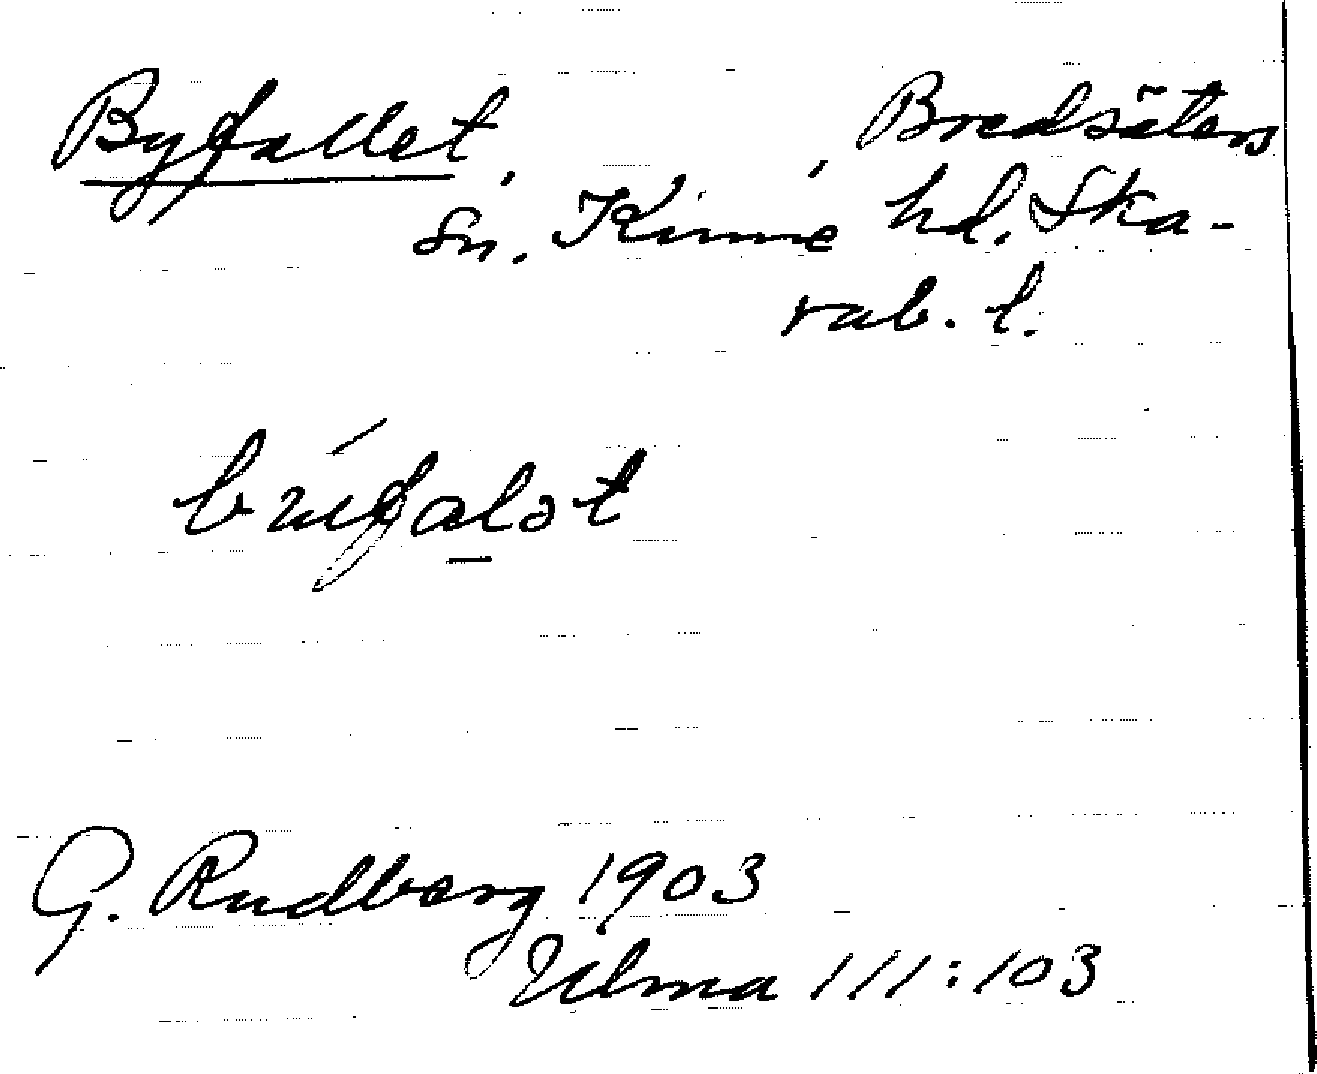 Byfallet, Bredsäters
sn. Kinne hd. Ska-
rab. l.
G. Rudberg 1903
Ulma 111:103